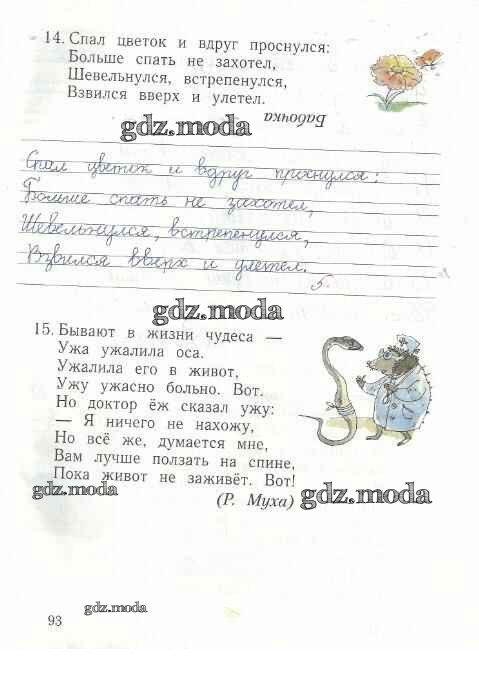 14. Спал цветок и вдруг проснулся:
Больше спать не захотел,
Шевельнулся, встрепенулся,
Взвился вверх и улетел.
Бабочка
gdz.moda
Спал цветок и вдруг проснулся:
Больше спать не захотел,
Шевельнулся, встрепенулся,
Взвился вверх и улетел.
5.
gdz.moda
15. Бывают в жизни чудеса —
Ужа ужалила оса.
Ужалила его в живот,
Ужу ужасно больно. Вот.
Но доктор ёж сказал ужу:
— Я ничего не нахожу,
Но всё же, думается мне,
Вам лучше ползать на спине,
Пока живот не заживёт. Вот!
gdz.moda
(Р. Муха)
gdz.moda
gdz.moda
93